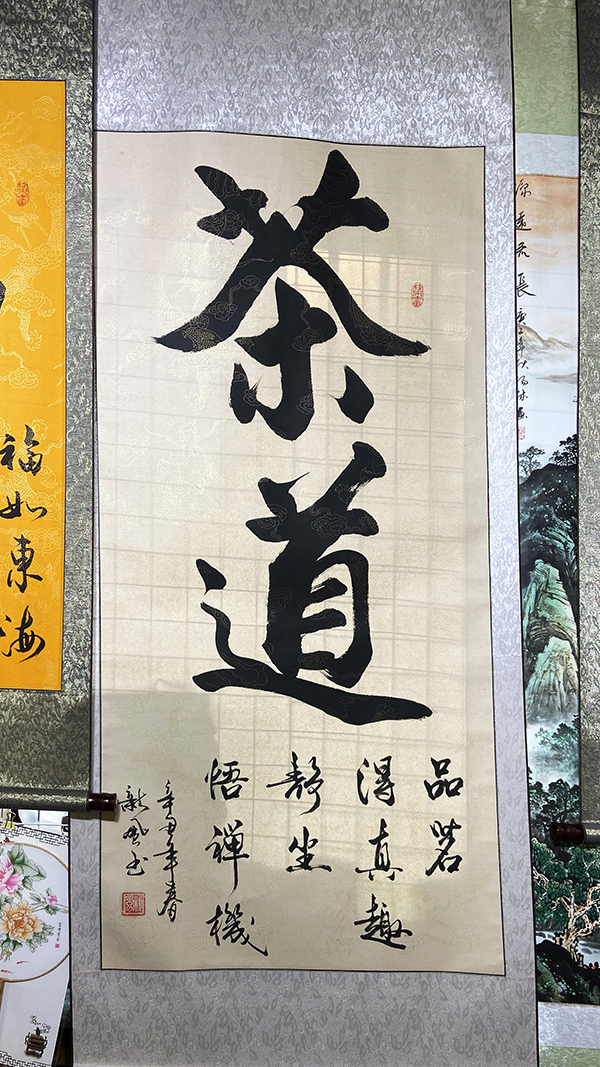 茶道
品茗
得真趣
靜坐
悟禪機
辛丑年春
新風书
福如東海
源遠流長